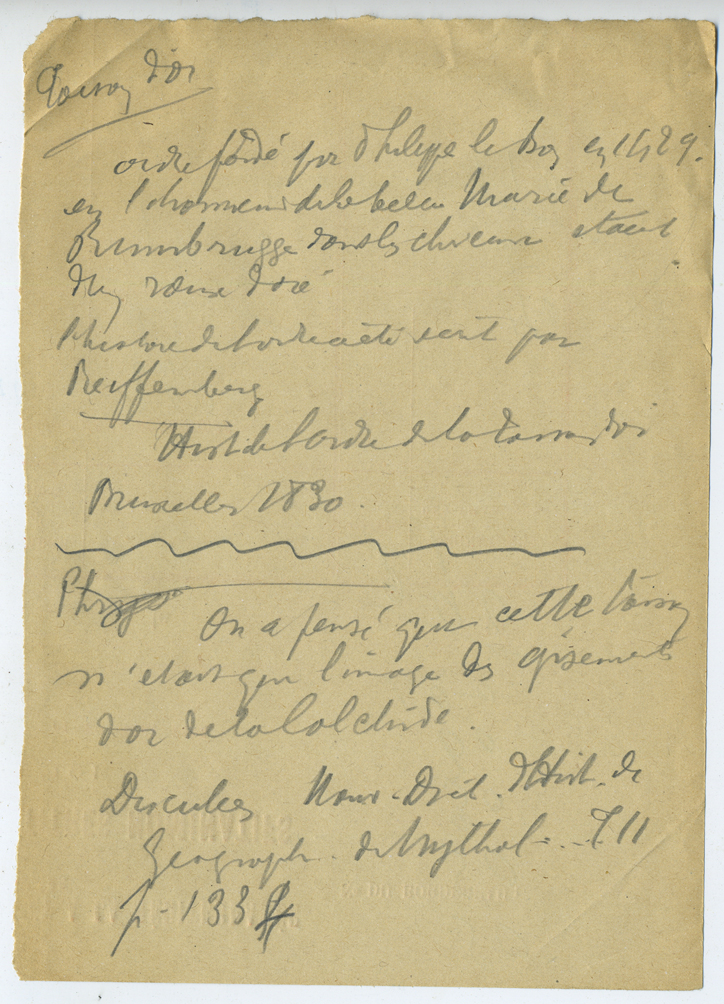 Toison d'or
ordre fondé par Philippe le Bon en 1429.
en l'honneur de la belle Marie de
Rumbrugge dont les cheveux étaient
d'un roux doré
l'histoire de l'ordre a été écrit par
Reiffenberg
Hist de l'ordre de la Toison d'or
Bruxelles 1830.
On a pensé que cette toison
n'était que l'image des gisements
d'or de la Colchide.
Nouv. Dict. d'Hist. de
Geograph. de Mythol. T. 11
p. 133